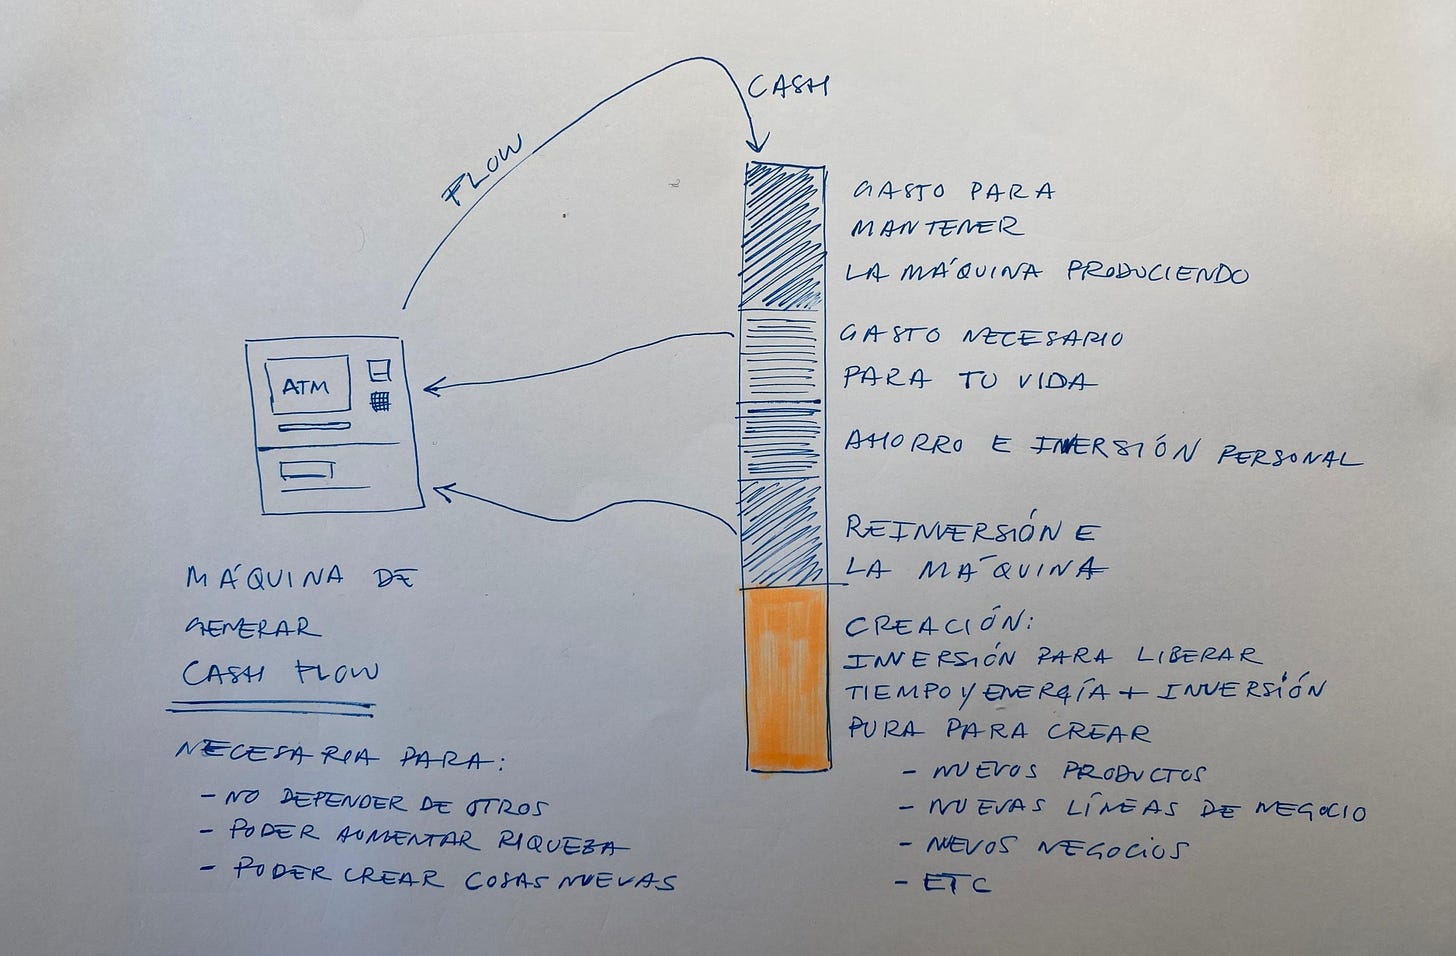 FLOW
CASH
GASTO PARA
MANTENER
LA MÁQUINA PRODUCIENDO
GASTO NECESARIO
PARA TU VIDA
AHORRO E INVERSIÓN PERSONAL
REINVERSIÓN E
LA MÁQUINA
CREACIÓN:
INVERSIÓN PARA LIBERAR
TIEMPO Y ENERGÍA + INVERSIÓN
PURA PARA CREAR
- NUEVOS PRODUCTOS
- NUEVAS LÍNEAS DE NEGOCIO
- NUEVOS NEGOCIOS
- ETC
ATM
MÁQUINA DE
GENERAR
CASH FLOW
NECESARIA PARA:
- NO DEPENDER DE OTROS
- PODER AUMENTAR RIQUEZA
- PODER CREAR COSAS NUEVAS